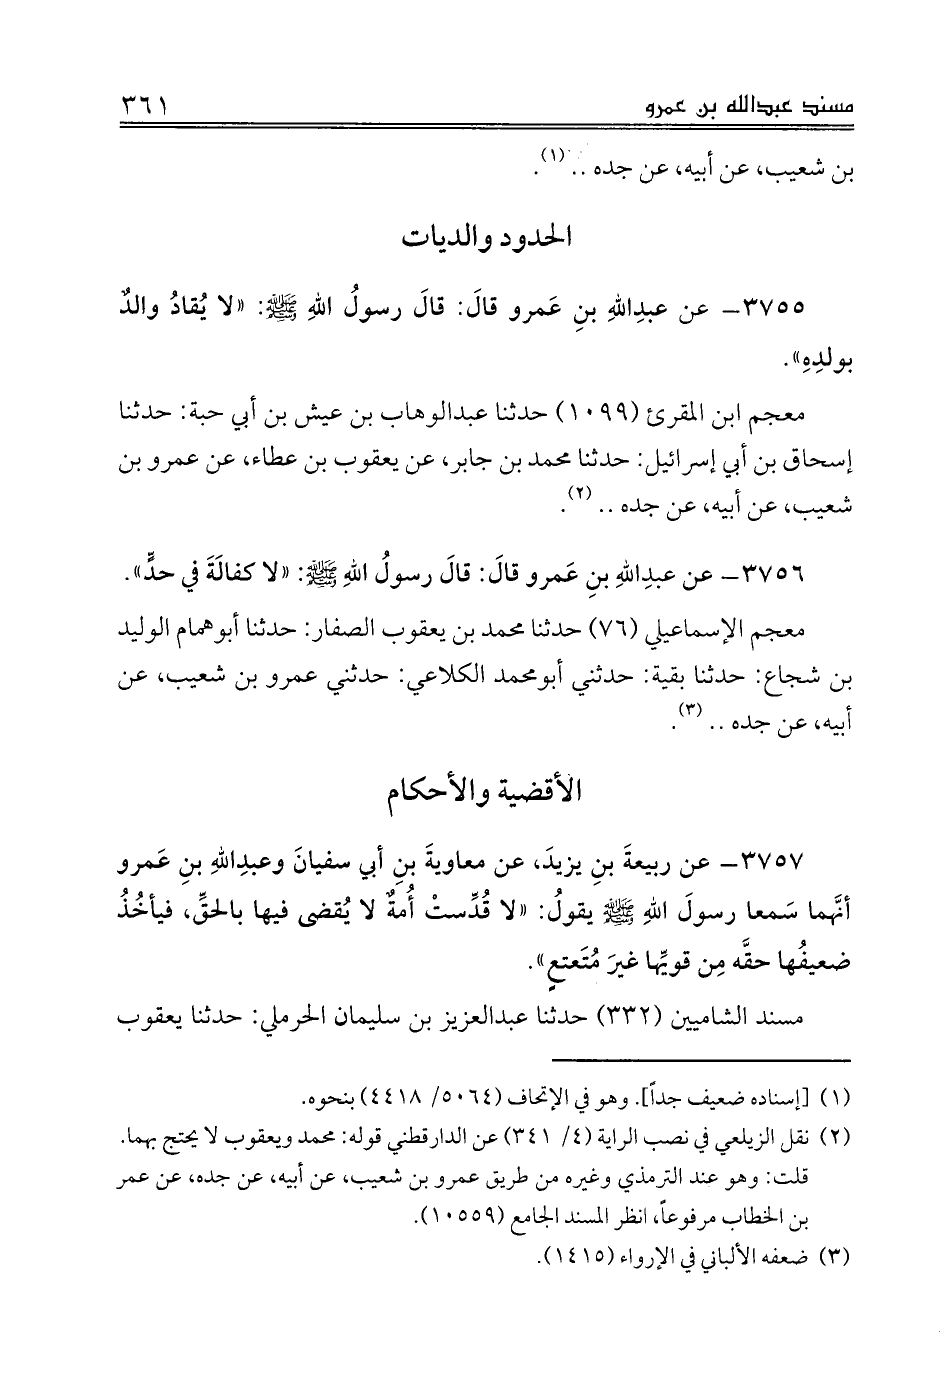 مسند عبدالله بن عمرو ٣٦١
بن شعيب، عن أبيه، عن جده .. (١).
الحدود والديات
٣٧٥٥- عن عبدِاللهِ بنِ عَمرو قالَ: قالَ رسولُ اللهِ ﷺ: «لا يُقادُ والدٌ
بولدِهِ».
معجم ابن المقرئ (١٠٩٩) حدثنا عبدالوهاب بن عيش بن أبي حبة: حدثنا
إسحاق بن أبي إسرائيل: حدثنا محمد بن جابر، عن يعقوب بن عطاء، عن عمرو بن
شعيب، عن أبيه، عن جده .. (٢).
٣٧٥٦- عن عبدِاللهِ بنِ عَمرو قالَ: قالَ رسولُ اللهِ ﷺ: «لا كفالَةَ في حدٍّ».
معجم الإسماعيلي (٧٦) حدثنا محمد بن يعقوب الصفار: حدثنا أبوهمام الوليد
بن شجاع: حدثنا بقية: حدثني أبومحمد الكلاعي: حدثني عمرو بن شعيب، عن
أبيه، عن جده .. (٣).
الأقضية والأحكام
٣٧٥٧- عن ربيعةَ بنِ يزيدَ، عن معاويةَ بنِ أبي سفيانَ وعبدِاللهِ بنِ عَمرو
أنَّهما سَمعا رسولَ اللهِ ﷺ يقولُ: «لا قُدِّستْ أُمةٌ لا يُقضى فيها بالحقِّ، فيأخُذُ
ضعيفُها حقَّه مِن قويِّها غيرَ مُتَعتعٍ».
مسند الشاميين (٣٣٢) حدثنا عبدالعزيز بن سليمان الحرملي: حدثنا يعقوب
(١) [إسناده ضعيف جداً]. وهو في الإتحاف (٥٠٦٤/ ٤٤١٨) بنحوه.
(٢) نقل الزيلعي في نصب الراية (٤/ ٣٤١) عن الدارقطني قوله: محمد ويعقوب لا يحتج بهما.
قلت: وهو عند الترمذي وغيره من طريق عمرو بن شعيب، عن أبيه، عن جده، عن عمر
بن الخطاب مرفوعاً، انظر المسند الجامع (١٠٥٥٩).
(٣) ضعفه الألباني في الإرواء (١٤١٥).